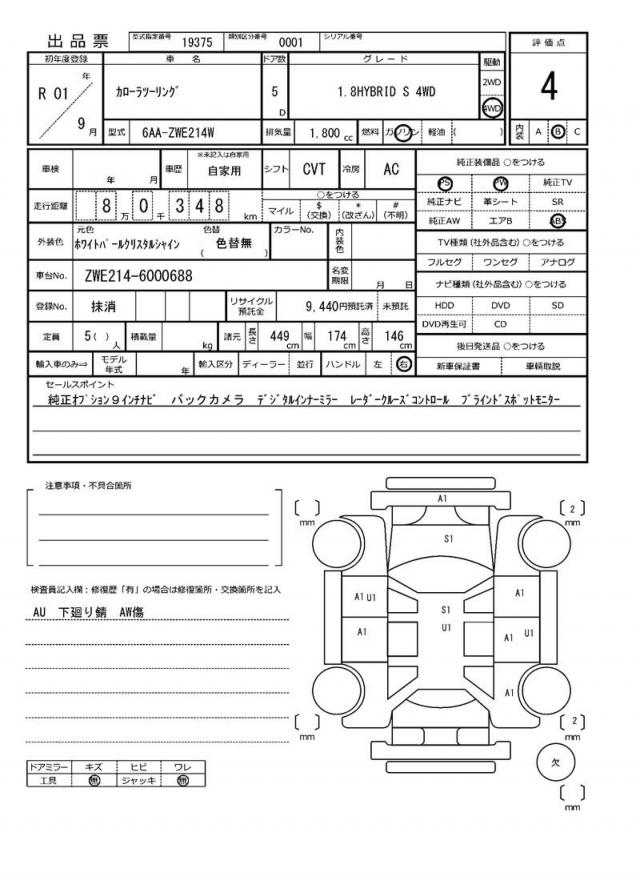 出品票 型式指定番号 19375 類別区分番号 0001 シリアル番号
初年度登録 車名 ドア数 グレード 駆動 評価点
R 01 年 9 月 カローラツーリング 5 D 1.8HYBRID S 4WD 2WD 4WD 4
型式 6AA-ZWE214W 排気量 1,800 cc 燃料 ガソリン 軽油 ( ) 内装 A B C
車検 年 月 車歴 ※未記入は自家用 自家用 シフト CVT 冷房 AC 純正装備品 ○をつける
PS PW 純正TV
走行距離 8 万 0 千 3 4 8 km ○をつける マイル $ (交換) * (改ざん) # (不明) 純正ナビ 革シート SR
純正AW エアB ABS
外装色 元色 ホワイトパールクリスタルシャイン 色替 ( 色替無 ) カラーNo. 内装色 TV種類 (社外品含む) ○をつける
フルセグ ワンセグ アナログ
車台No. ZWE214-6000688 名変期限 月 日 ナビ種類 (社外品含む) ○をつける
登録No. 抹消 リサイクル預託金 9,440円預託済 未預託 HDD DVD SD
DVD再生可 CD
定員 5 ( ) 人 積載量 kg 諸元 長さ 449 cm 幅 174 cm 高さ 146 cm 後日発送品 ○をつける
輸入車のみ⇒ モデル年式 年 輸入区分 ディーラー 並行 ハンドル 左 右 新車保証書 車輌取説
セールスポイント
純正オプション9インチナビ バックカメラ デジタルインナーミラー レーダークルーズコントロール ブラインドスポットモニター
注意事項・不具合箇所
検査員記入欄：修復歴「有」の場合は修復箇所・交換箇所を記入
AU 下廻り錆 AW傷
ドアミラー キズ ヒビ ワレ
工具 無 ジャッキ 無
A1
[ ] mm [ 2 ] mm
S1
A1 U1 S1 A1
A1 U1 A1 U1
A1
[ ] mm [ 2 ] mm
欠
[ ] mm